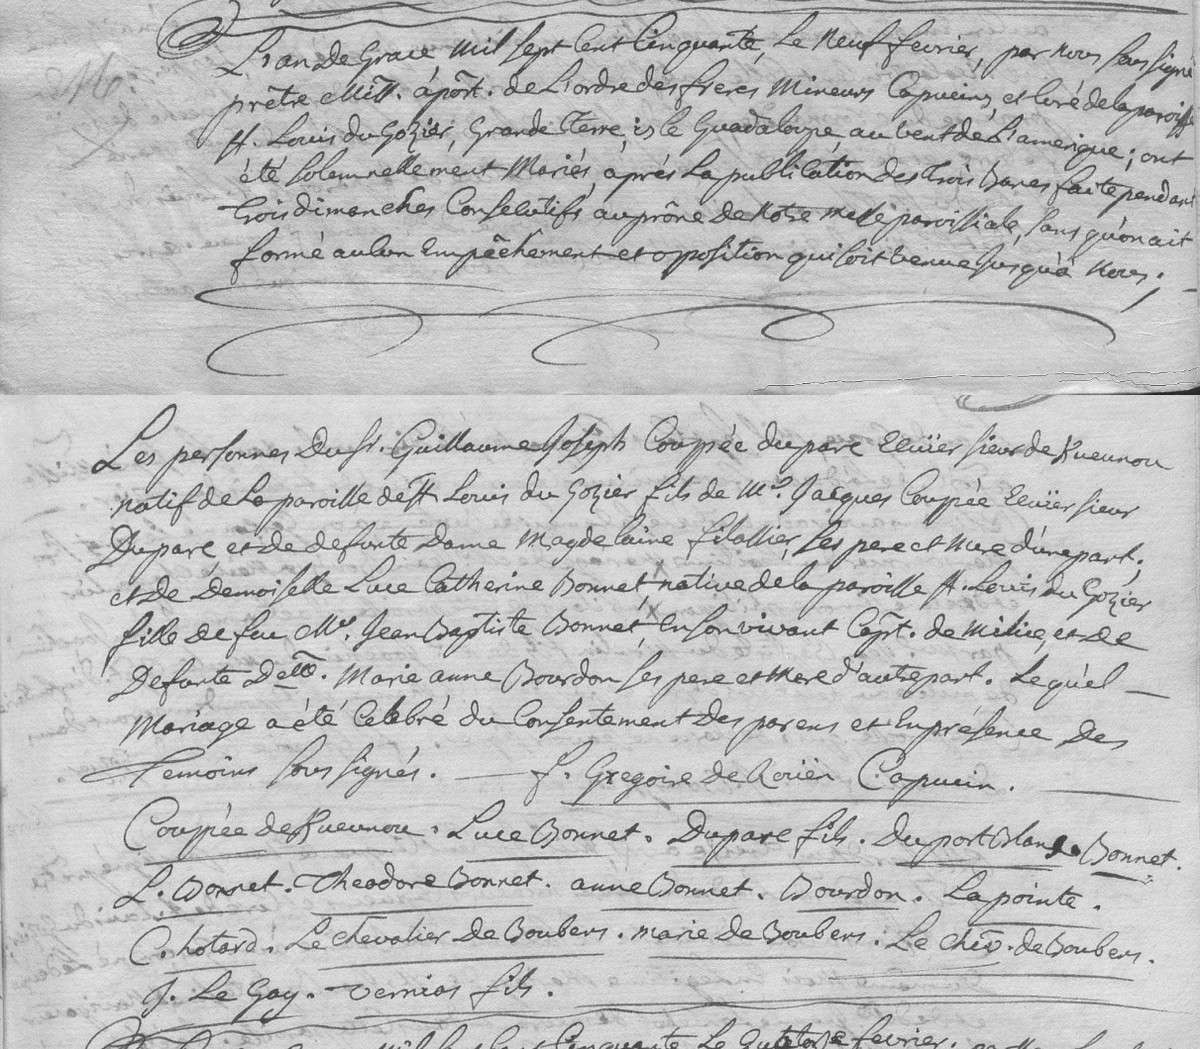 L'an de Grace, Mil sept Cent Cinquante, Le Neuf fevrier, par Nous sous signé
prêtre Miss. apost. de L'ordre des freres Mineurs Capucins, et Curé de la paroisse
St. Louis du Gozier, Grande Terre, isle Guadaloupe au vent de L'amerique; ont
été solemnellement Mariés, aprés La publication des Trois Bancs faite pendant
Trois dimanches Consecutifs au prône de Notre Messe paroissiale, sans qu'on ait
formé aucun Empâchement et oposition qui soit venue jusqu'à Nous;
Les personnes Du Sr. Guillaume Joseph Coupée du parc Ecuier sieur de Kueunou
natif de La paroisse de St Louis du Gozier fils de Mr. Jacques Coupée Ecuier sieur
Du parc et de defunte Dame Magdelaine filassier, ses pere et Mere d'une part;
et de Demoiselle Luce Catherine Bonnet, native de la paroisse St. Louis du Gozier
fille de feu Mr. Jean Baptiste Bonnet, En son vivant Capt. de Milice, et de
Defunte Delle. Marie anne Bourdon ses pere et Mere d'autre part. Lequel
Mariage a été Celebré du Consentement des parens et En présence Des
Temoins sous signés. f. Gregoire de Roüen Capucin.
Coupée de Kueunou. Luce Bonnet. Duparc fils. Du port Blanc. Bonnet.
L. Bonnet. Theodore Bonnet. anne Bonnet. Bourdon. La pointe.
C. hotard. Le chevalier De Boubers. marie de Boubers. Le chev. de Boubers.
J. Le Gay. Vernias fils.
Mil sept Cent Cinquante Le Quatorze fevrier.